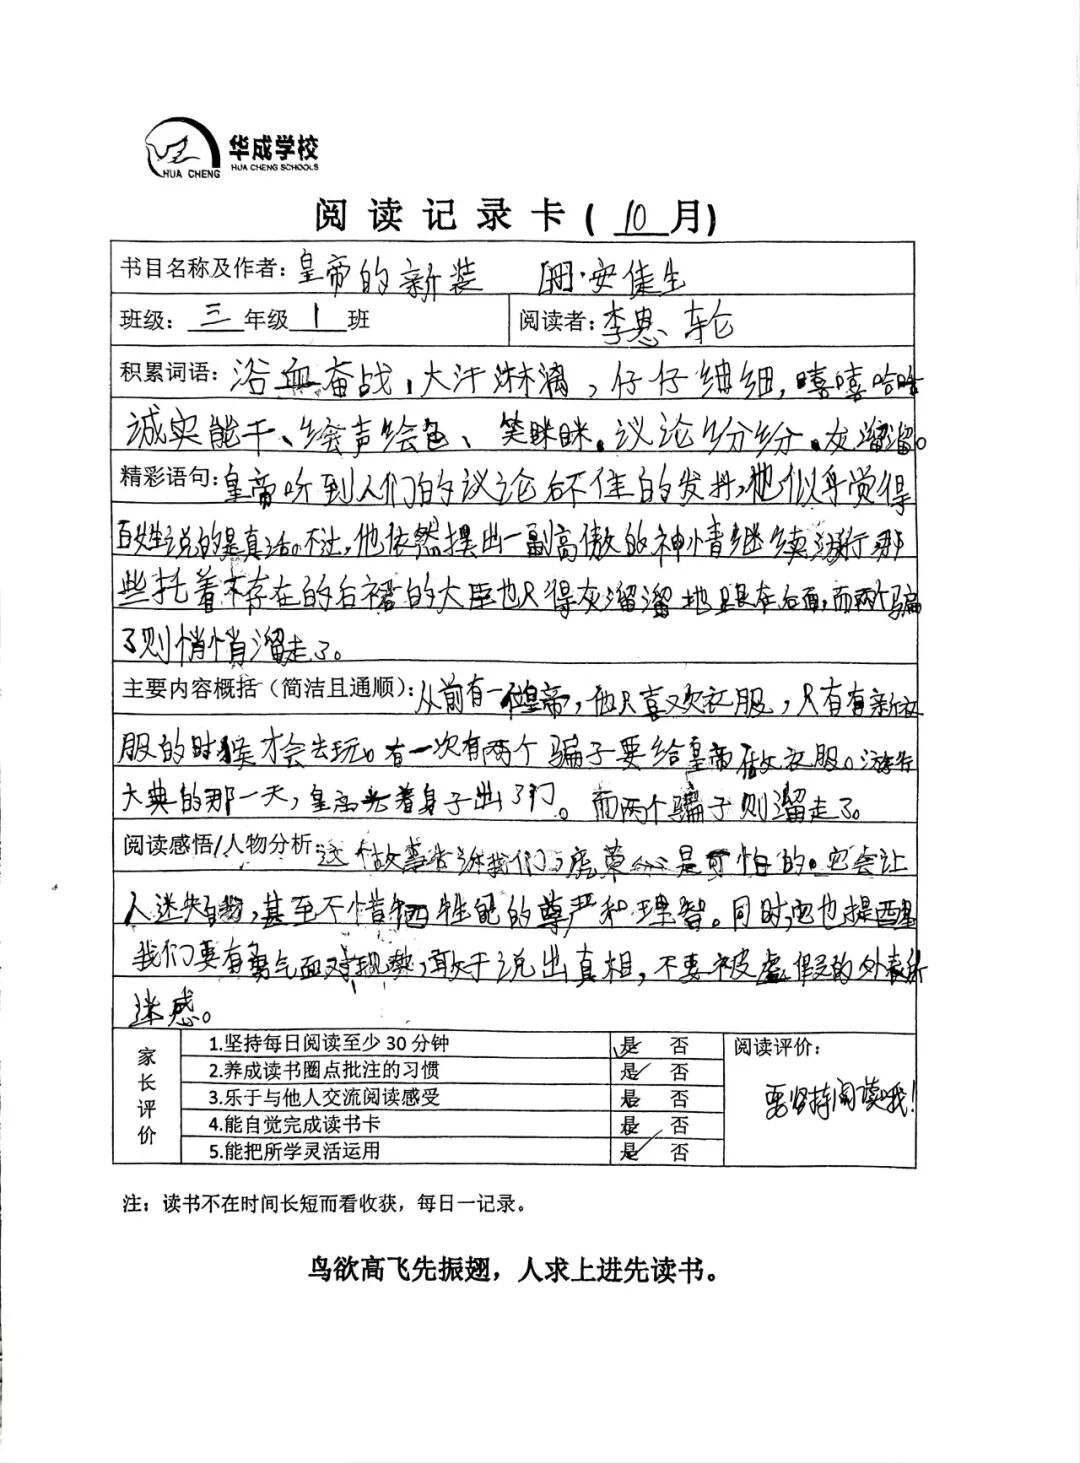 华成学校
HUA CHENG SCHOOLS
HUA CHENG
阅读记录卡(10月)
书目名称及作者:皇帝的新装 [丹·安佳生
班级:三年级1班 阅读者:李思轮
积累词语:浴血奋战,大汗淋漓,仔仔细细,嘻嘻哈哈
诚实能干、绘声绘色、笑眯眯.议论纷纷.灰溜溜。
精彩语句:皇帝听到人们的议论后不佳的发抖,他似乎觉得
百姓说的是真话。不过,他依然摆出一副高傲的神情继续游行那
些托着不存在的后裙的大臣也只得灰溜溜地跟在后面,而两个骗
了则悄悄溜走了。
主要内容概括(简洁且通顺):从前有一位皇帝,他只喜欢衣服,只有有新衣
服的时候才会去玩。有一次有两个骗子要给皇帝做衣服。游行
大典的那一天,皇帝光着身子出了门。而两个骗子则溜走了。
阅读感悟/人物分析:这个故事告诉我们,虚荣心是可怕的。它会让
人迷失自我,甚至不惜牺牲的尊严和理智。同时,它也提醒
我们要有勇气面对现势,敢于说出真相,不要被虚假的外表所
迷惑。
家长评价
1.坚持每日阅读至少30分钟 是 否
2.养成读书圈点批注的习惯 是 否
3.乐于与他人交流阅读感受 是 否
4.能自觉完成读书卡 是 否
5.能把所学灵活运用 是 否
阅读评价:
要坚持阅读哦!
注:读书不在时间长短而看收获,每日一记录。
鸟欲高飞先振翅,人求上进先读书。